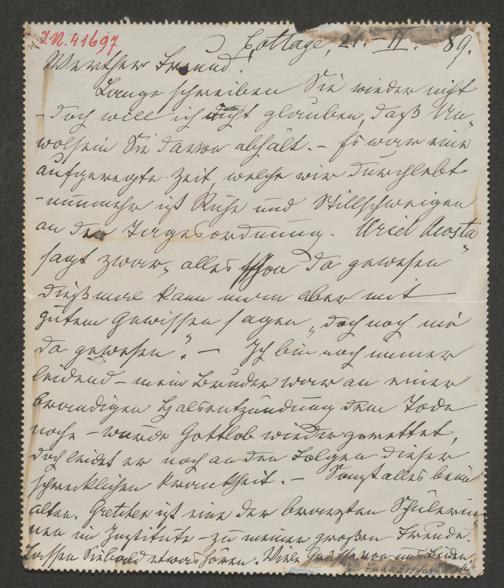 I.N. 41697
Cottage, 21.-II. 89.
Werther Freund!
Lange schreiben Sie wieder nicht
- doch will ich nicht glauben, daß Un-
wolsein Sie davon abhält. - Es war eine
aufgeregte Zeit, welche wir durchlebt
- nunmehr ist Ruhe und Stillschweigen
an der Tagesordnung. Uriel Acosta
sagt zwar, "alles schon da gewesen"
dießmal kann man aber mit
gutem Gewissen sagen "doch noch nie
da gewesen". - Ich bin noch immer
leidend - mein Bruder war an einer
brandigen Halsentzündung dem Tode
nahe - wurde Gottlob wieder gerettet,
doch leidet er noch an den Folgen dieser
schrecklichen Krankheit. - Sonst alles beim
alten. Gretchen ist eine der bravsten Schülerin
nen im Institute - zu meiner großen Freude.
Lassen Sie bald etwas hören. Viele Grüße von uns Beiden